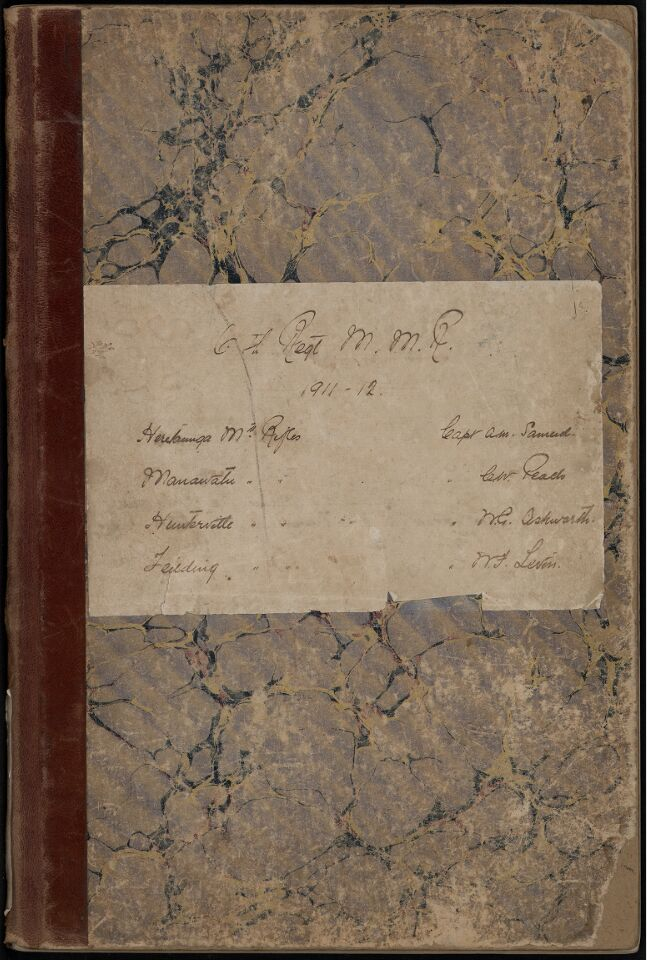 6th Regt M. M. R.
1911-12.
Heretaunga Mtd Rifles Capt A.M. Samuel.
Manawatu " " " C.W. Peach
Hunterville " " " W.G. Ashworth.
Feilding " " " W.F. Levin.